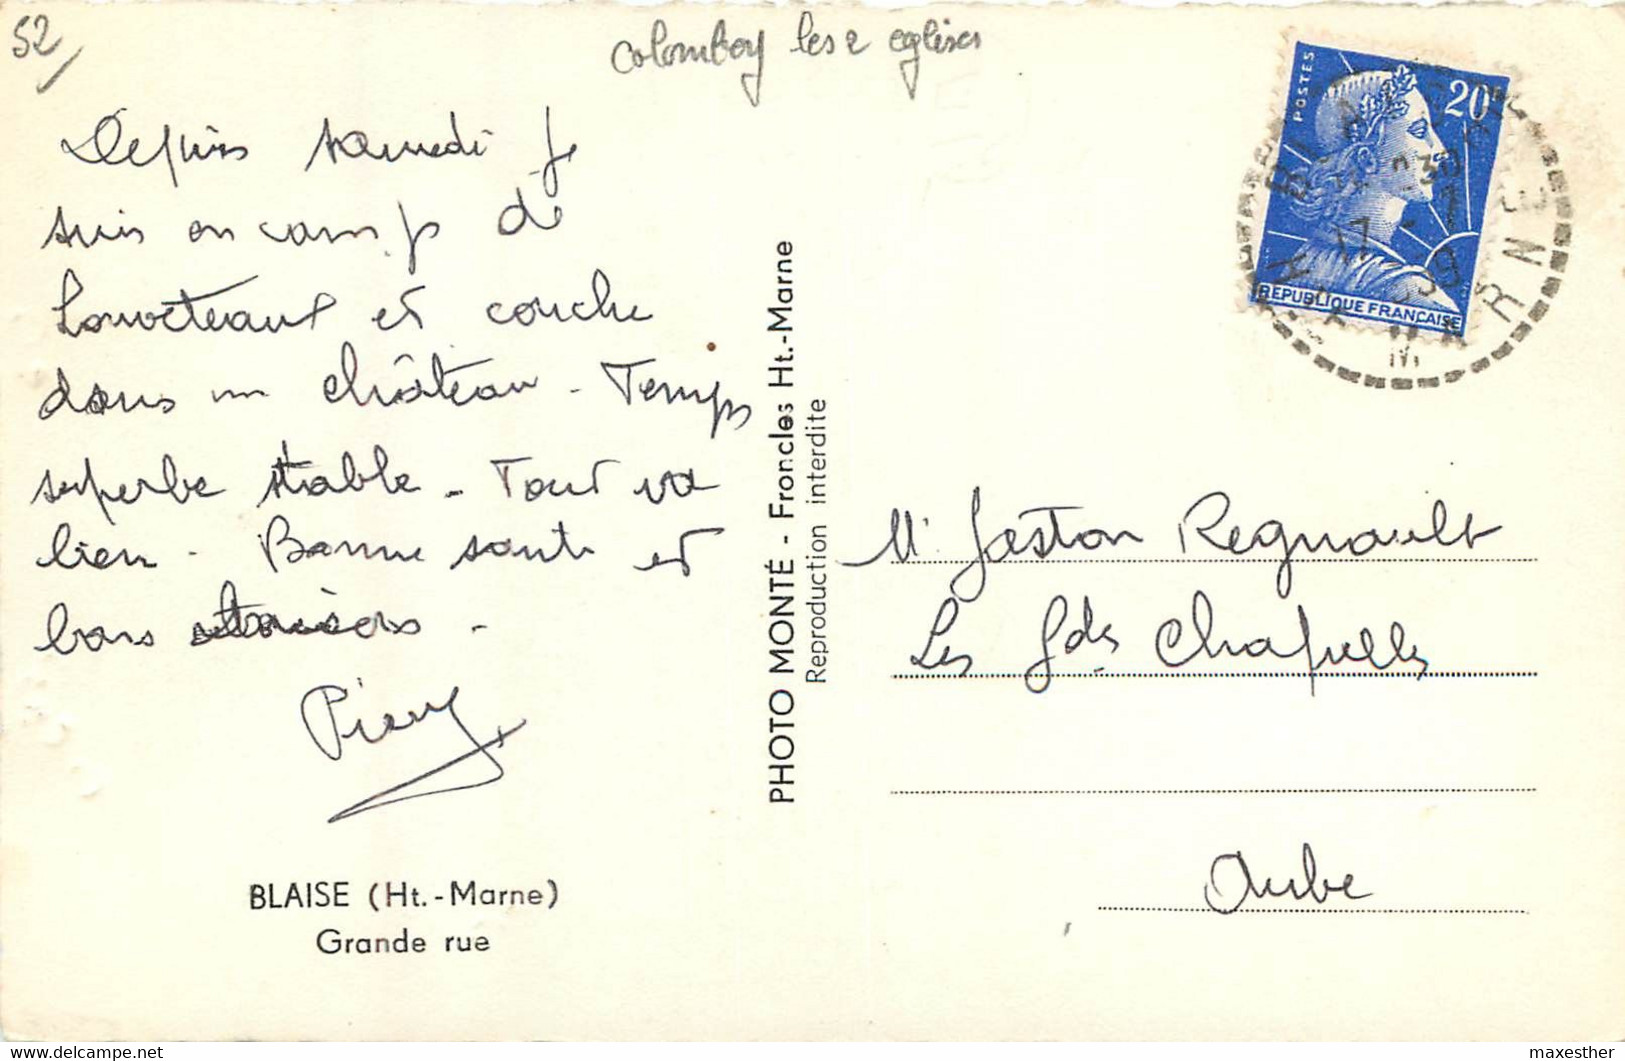 52
Colombey les 2 eglises
Depuis samedi je
suis en camp de
Louveteaux et couche
dans un château - Temps
superbe stable - Tout va
bien - Bonne santé et
bons
Pierre
BLAISE (Ht.-Marne)
Grande rue
PHOTO MONTÉ - Froncles Ht.-Marne
Reproduction interdite
POSTES
20
REPUBLIQUE FRANÇAISE
17 - 7
MARNE
Mr Gaston Regnault
Les Gdes Chapelles
Aube
maxesther